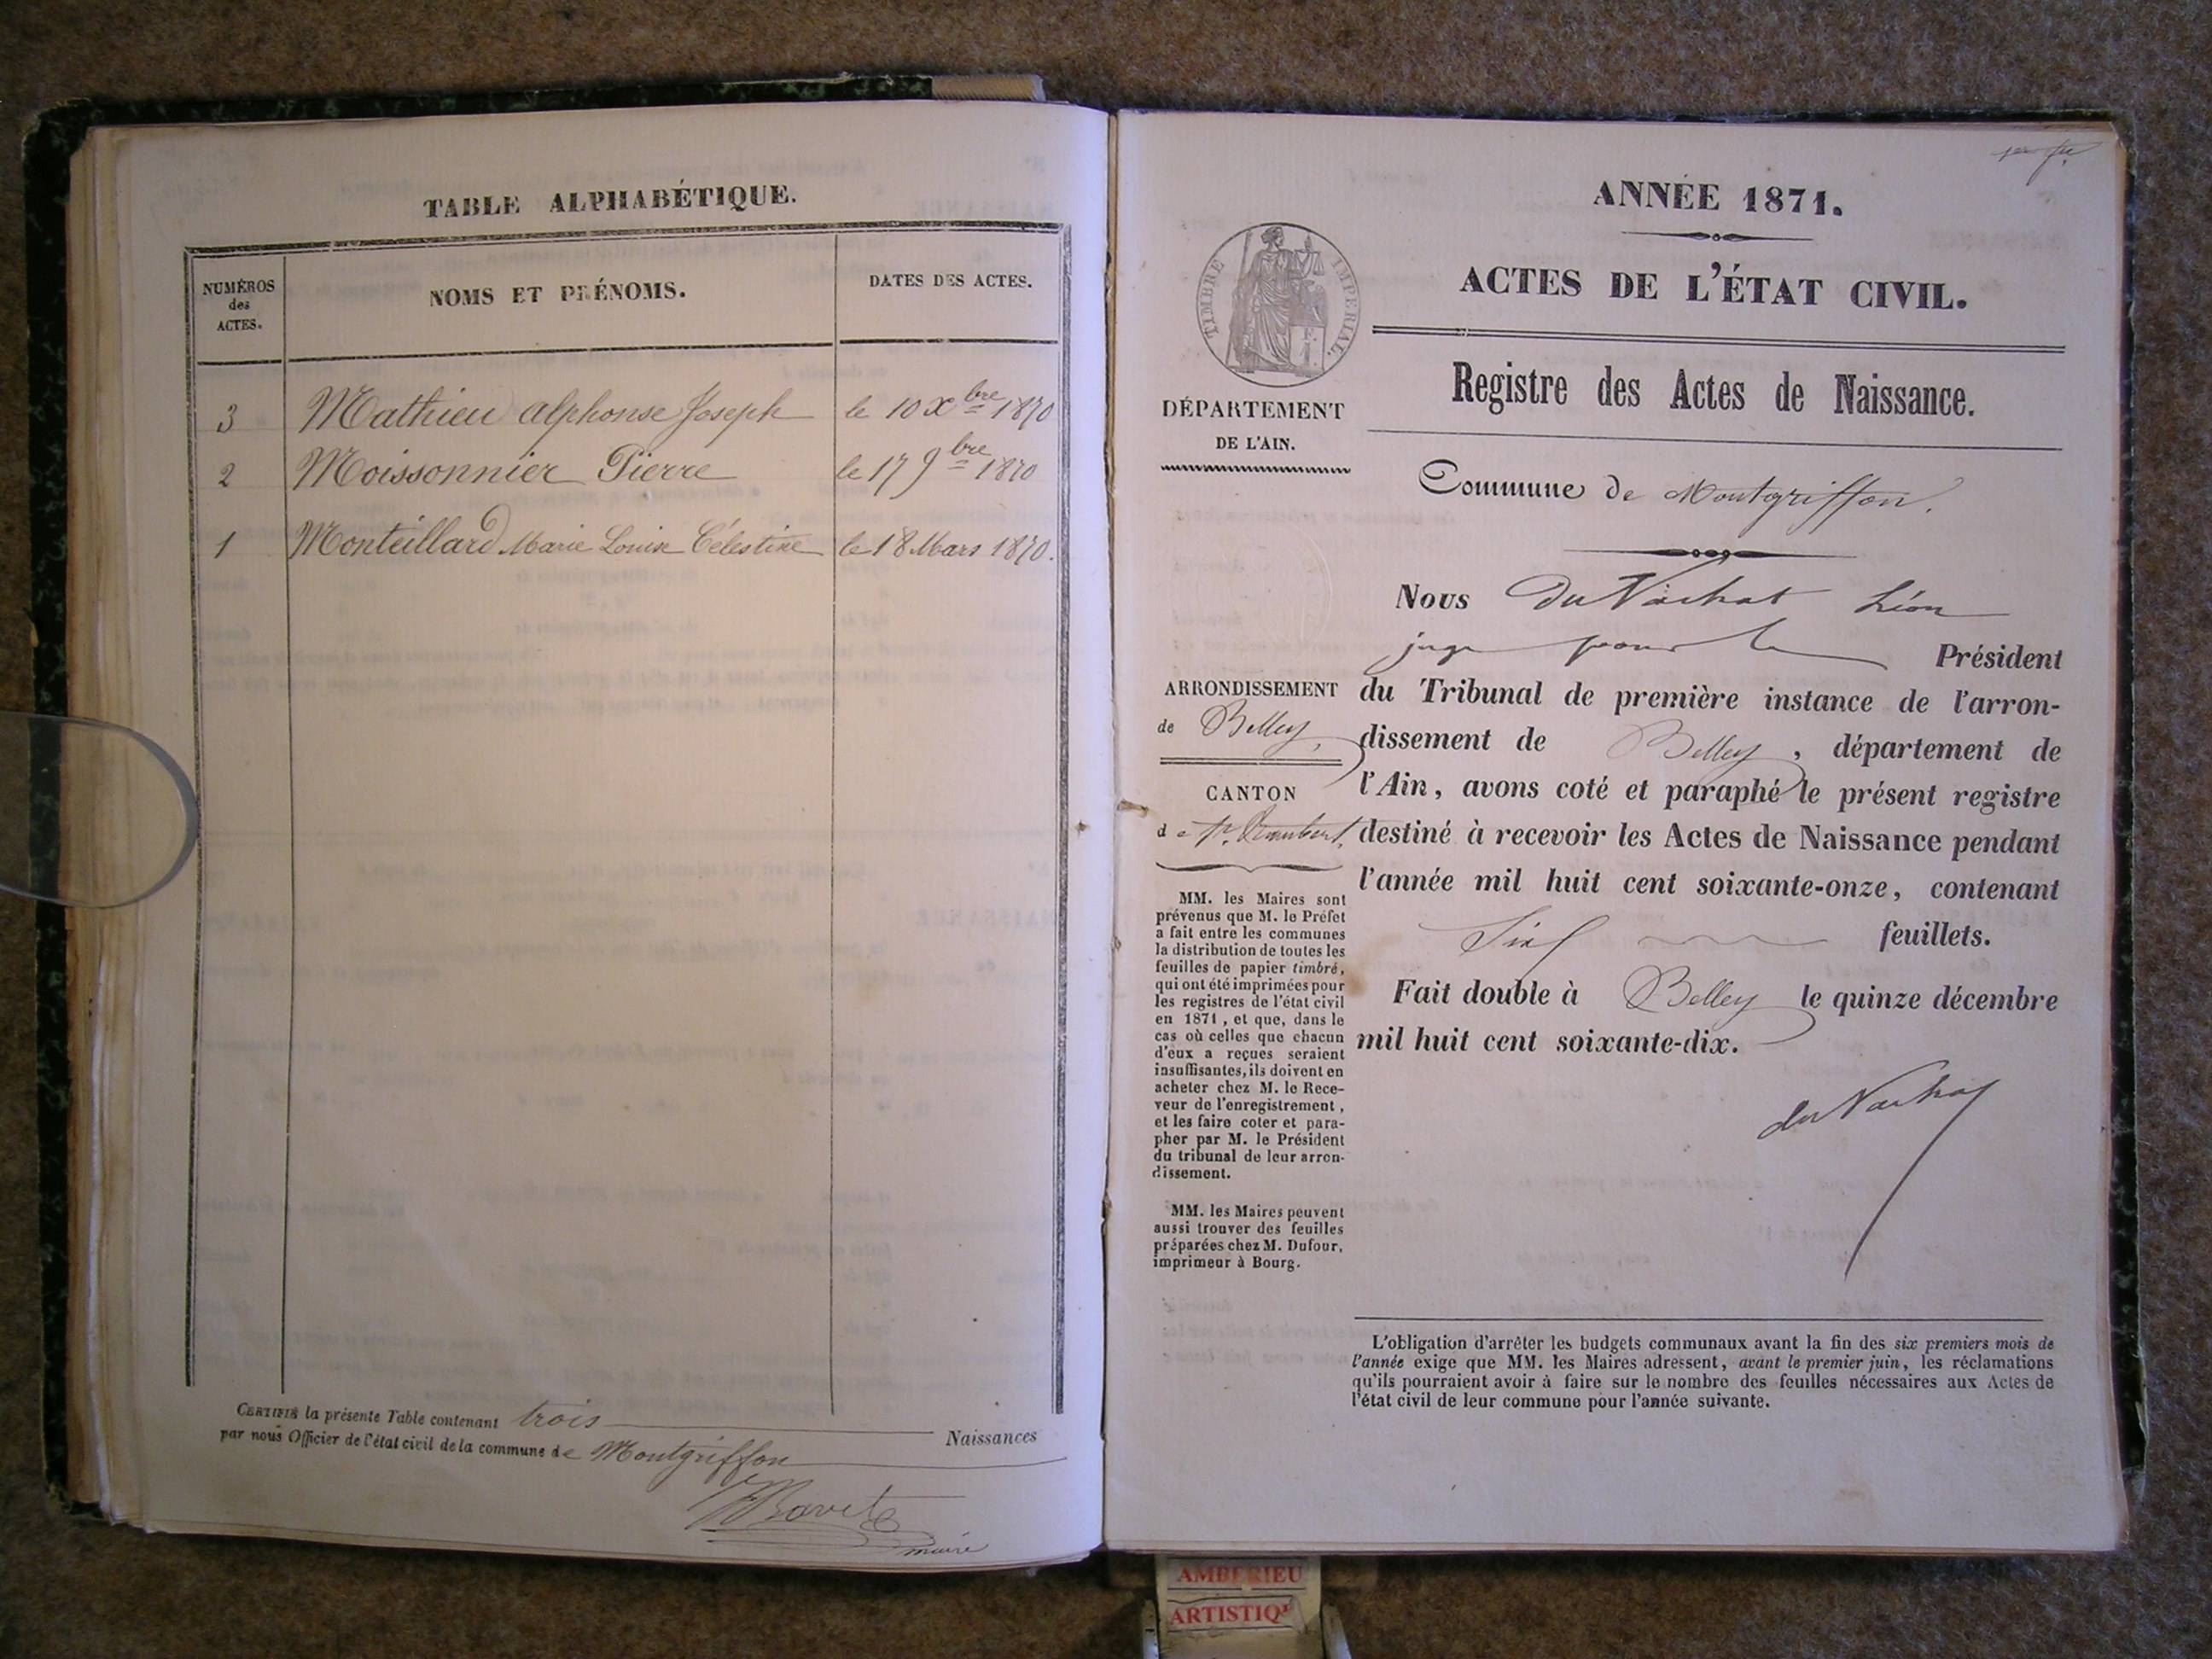 TABLE ALPHABÉTIQUE.
NUMÉROS
des
ACTES.
NOMS ET PRÉNOMS.
DATES DES ACTES.
3 Mathieu alphonse Joseph le 10 Xbre 1870
2 Moissonnier Pierre le 17 9bre 1870
1 Monteillard Marie Louise Célestine le 18 Mars 1870.
CERTIFIÉ la présente Table contenant trois Naissances
par nous Officier de l'état civil de la commune de Montgriffon
maire
ANNÉE 1871.
ACTES DE L'ÉTAT CIVIL.
TIMBRE IMPÉRIAL.
Registre des Actes de Naissance.
DÉPARTEMENT
DE L'AIN.
Commune de Montgriffon.
Nous Du Vachat Léon
juge pour le Président
du Tribunal de première instance de l'arron-
dissement de Belley, département de
l'Ain, avons coté et paraphé le présent registre
destiné à recevoir les Actes de Naissance pendant
l'année mil huit cent soixante-onze, contenant
Six feuillets.
Fait double à Belley le quinze décembre
mil huit cent soixante-dix.
du Vachat
ARRONDISSEMENT
de Belley,
CANTON
de St. Rambert.
MM. les Maires sont
prévenus que M. le Préfet
a fait entre les communes
la distribution de toutes les
feuilles de papier timbré,
qui ont été imprimées pour
les registres de l'état civil
en 1871, et que, dans le
cas où celles que chacun
d'eux a reçues seraient
insuffisantes, ils doivent en
acheter chez M. le Rece-
veur de l'enregistrement,
et les faire coter et para-
pher par M. le Président
du tribunal de leur arron-
dissement.
MM. les Maires peuvent
aussi trouver des feuilles
préparées chez M. Dufour,
imprimeur à Bourg.
L'obligation d'arrêter les budgets communaux avant la fin des six premiers mois de
l'année exige que MM. les Maires adressent, avant le premier juin, les réclamations
qu'ils pourraient avoir à faire sur le nombre des feuilles nécessaires aux Actes de
l'état civil de leur commune pour l'année suivante.
AMBERIEU
ARTISTIQ